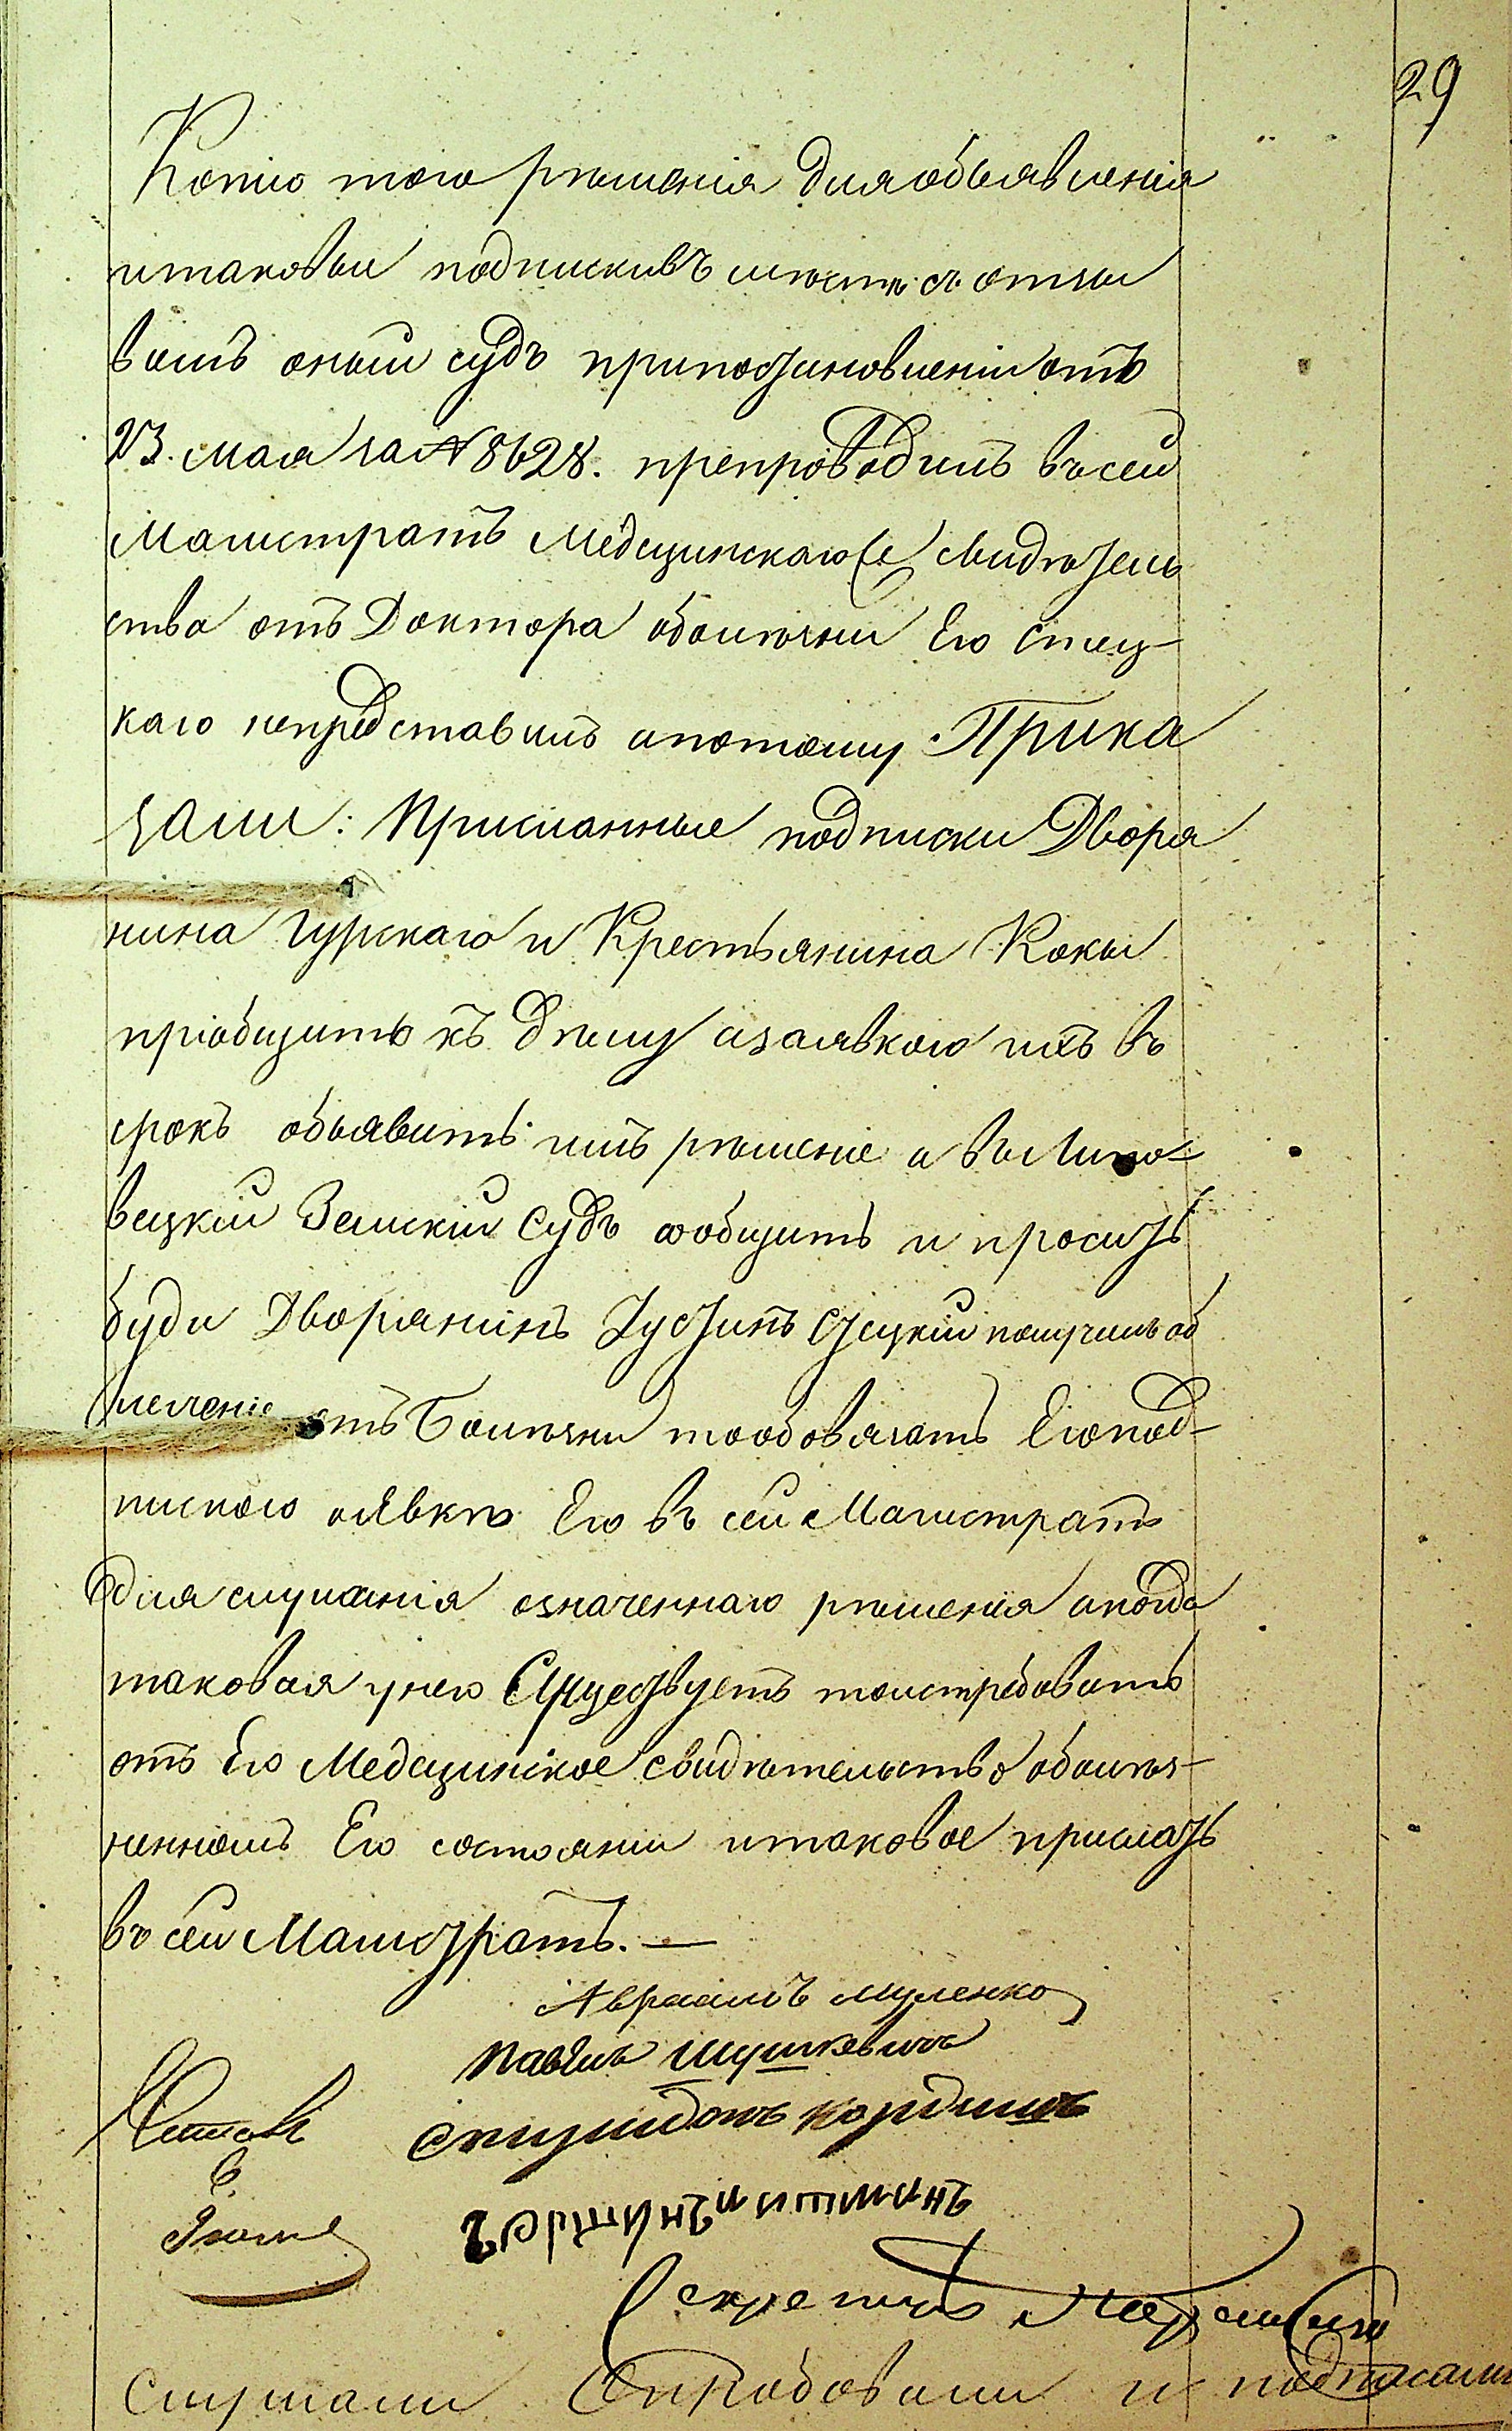 29
Копію того рѣшенія для объявленія
итаковыи подпискивъ мѣстѣ съ отзы
вомъ оный судъ припостановленіи отъ
23. мая за № 8628. препроводилъ въсей
Магистратъ Медецинскаго свидѣтель
ства отъ Доктора оболѣзни Его Стец-
каго непредставилъ ипотому Прика
зали: Присланные подписки Дворя
нина Гурскаго и Крестьянина Кокы
пріобщить къ дѣлу изаявкою ихъ въ
срокъ объявить имъ рѣшеніе и въ Липо-
вецкій Земскій Судъ сообщить и просить
буди Дворянинъ Іустинъ Стецкій получилъ об
легченіе отъ Болѣзни тообовязать Егопод-
пискою оявкѣ Его въ сей Магистратъ
для слушанія означеннаго рѣшенія икогда
таковая унего Существуетъ тоистребовать
отъ Его Медецинское свидѣтельство оболѣз-
ненномъ Его состояніи итаковое прислать
въ сей Магистратъ. —
Авраамъ Муленко
Павелъ Шушкевичъ
Секретарь
Слушали Опробовали и подписали